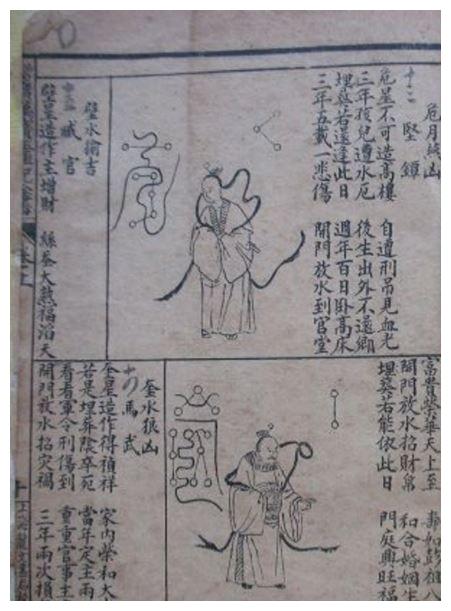 危月燕凶
十二 堅鐔
危星不可造高樓 自遭刑吊見血光
三年孩兒遭水厄 後生出外不還鄉
埋葬若還逢此日 週年百日卧高床
三年五載一悲傷 開門放水到官堂
壁水㺄吉
臧官
壁星造作主增財 絲蚕大熟福滔天
富貴榮華天上至 壽如彭祖八
開門放水招財帛 和合婚姻生
埋葬若能依此日 門庭興旺福
奎水狼凶
十四 馬武
奎星造作得禎祥 家內榮和大
若是埋葬陰卒死 當年定主兩
看看軍令刑傷到 重重官事主
開門放水招灾禍 三年兩次損